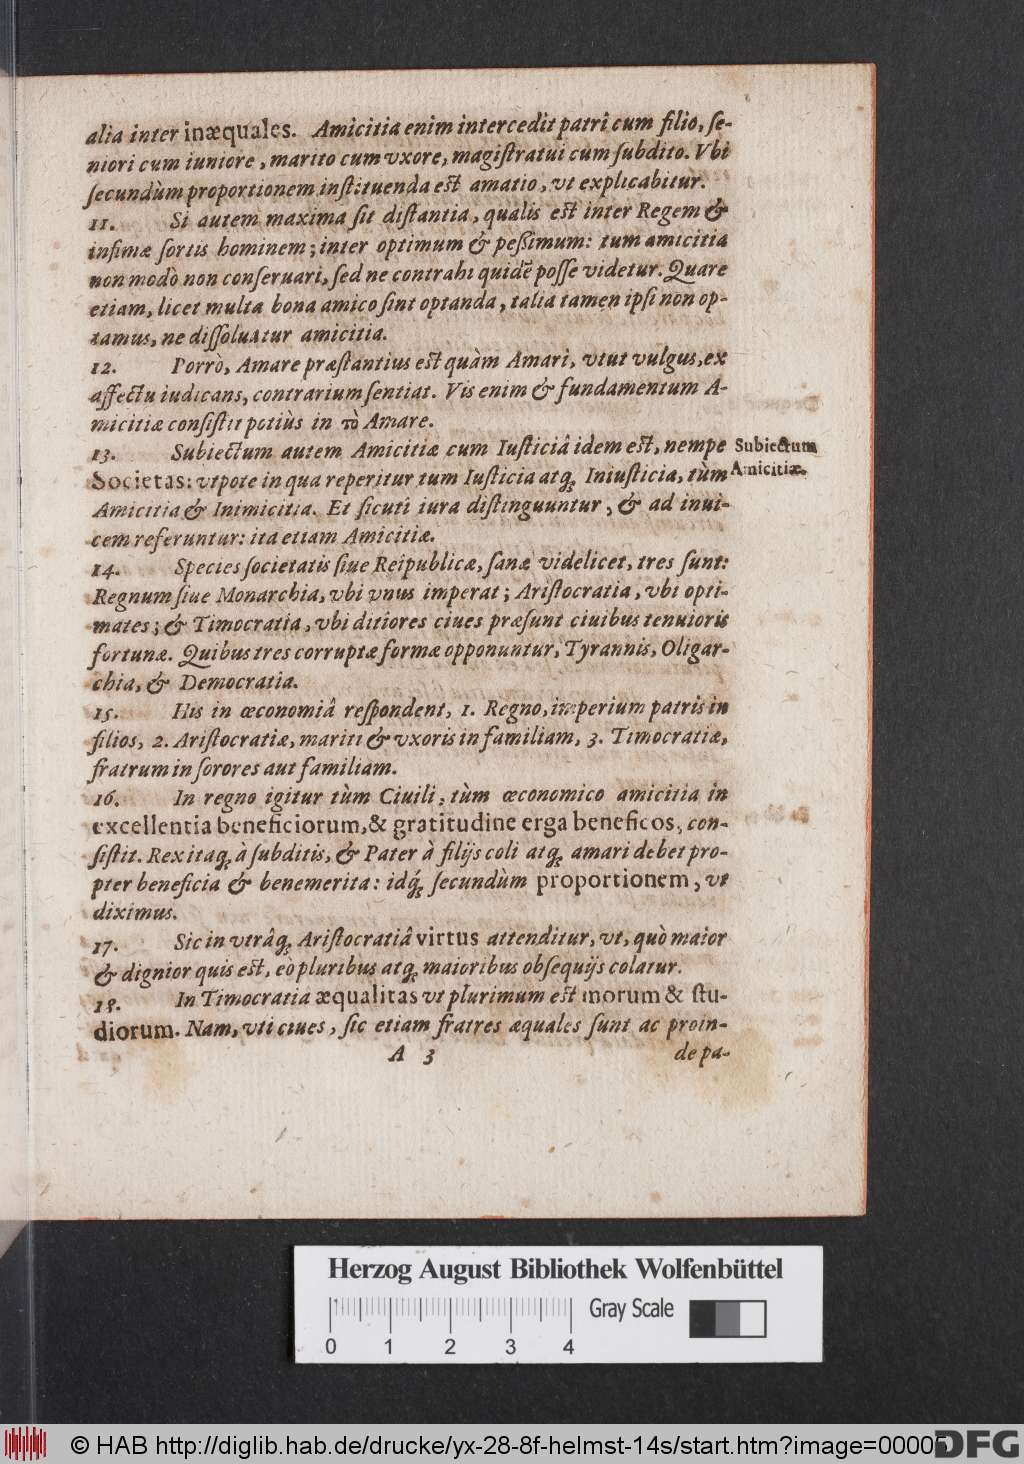 alia inter inæquales. Amicitia enim intercedit patri cum filio, ſe-
niori cum iuniore, marito cum vxore, magiſtratui cum ſubdito. Vbi
ſecundùm proportionem inſtituenda eſt amatio, vt explicabitur.
11. Si autem maxima ſit diſtantia, qualis eſt inter Regem &
infimæ ſortis hominem; inter optimum & peßimum: tum amicitia
non modò non conſeruari, ſed ne contrahi quidẽ poſſe videtur. Quare
etiam, licet multa bona amico ſint optanda, talia tamen ipſi non op-
tamus, ne diſſoluatur amicitia.
12. Porrò, Amare præſtantius eſt quàm Amari, vtut vulgus, ex
affectu iudicans, contrarium ſentiat. Vis enim & fundamentum A-
micitiæ conſiſtit potiùs in τὸ Amare.
13. Subiectum autem Amicitiæ cum Iuſticiâ idem eſt, nempe
Subiectum
Amicitiæ.
Societas: vtpote in qua reperitur tum Iuſticia atq; Iniuſticia, tùm
Amicitia & Inimicitia. Et ſicuti iura diſtinguuntur, & ad inui-
cem referuntur: ita etiam Amicitiæ.
14. Species ſocietatis ſiue Reipublicæ, ſanæ videlicet, tres ſunt:
Regnum ſiue Monarchia, vbi vnus imperat; Ariſtocratia, vbi opti-
mates; & Timocratia, vbi ditiores ciues præſunt ciuibus tenuioris
fortunæ. Quibus tres corruptæ formæ opponuntur, Tyrannis, Oligar-
chia, & Democratia.
15. His in œconomiâ reſpondent, 1. Regno, imperium patris in
filios, 2. Ariſtocratiæ, mariti & vxoris in familiam, 3. Timocratiæ,
fratrum in ſorores aut familiam.
16. In regno igitur tùm Ciuili, tùm œconomico amicitia in
excellentia beneficiorum, & gratitudine erga beneficos, con-
ſiſtit. Rex itaq; à ſubditis, & Pater à filijs coli atq; amari debet pro-
pter beneficia & benemerita: idq́; ſecundùm proportionem, vt
diximus.
17. Sic in vtrâq; Ariſtocratiâ virtus attenditur, vt, quò maior
& dignior quis eſt, eò pluribus atq; maioribus obſequijs colatur.
18. In Timocratia æqualitas vt plurimum eſt morum & ſtu-
diorum. Nam, vti ciues, ſic etiam fratres æquales ſunt ac proin-
A 3 de pa-
Herzog August Bibliothek Wolfenbüttel
0 1 2 3 4 Gray Scale
© HAB http://diglib.hab.de/drucke/yx-28-8f-helmst-14s/start.htm?image=00005
DFG